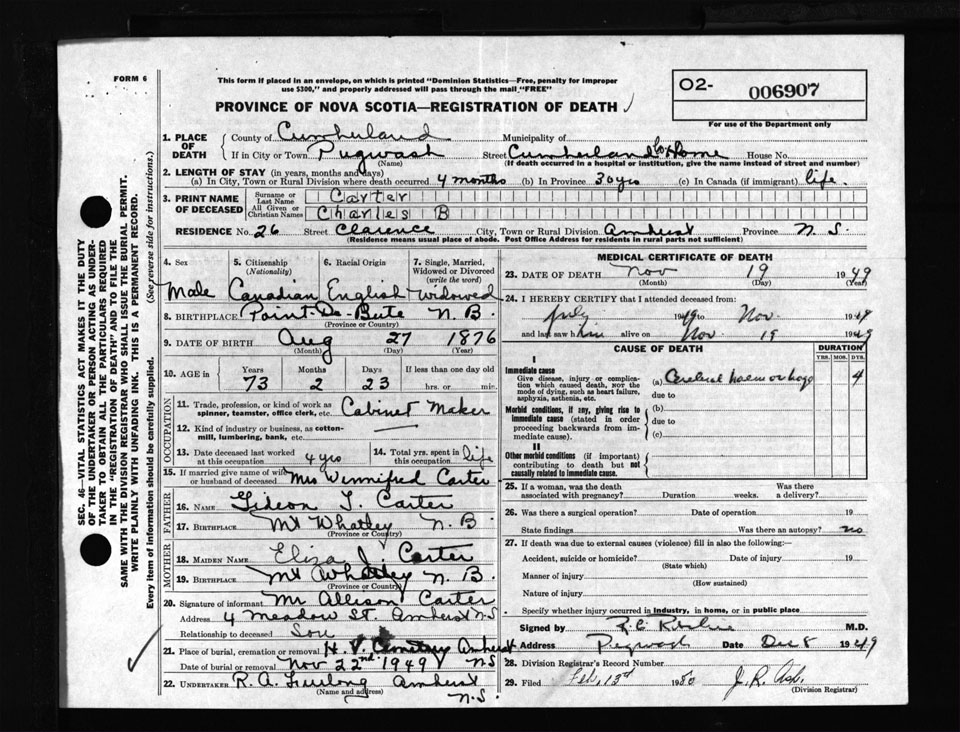 FORM 6
This form if placed in an envelope, on which is printed "Dominion Statistics—Free, penalty for improper
use $300," and properly addressed will pass through the mail "FREE"
PROVINCE OF NOVA SCOTIA—REGISTRATION OF DEATH
O2- 006907
For use of the Department only
1. PLACE OF DEATH
County of Cumberland Municipality of
If in City or Town Pugwash Street Cumberland Co Home House No.
(Name) (If death occurred in a hospital or institution, give the name instead of street and number)
2. LENGTH OF STAY (in years, months and days)
(a) In City, Town or Rural Division where death occurred 4 months (b) In Province 30 yrs (c) In Canada (if immigrant) life.
3. PRINT NAME OF DECEASED
Surname or Last Name Carter
All Given or Christian Names Charles B
RESIDENCE No. 26 Street Clarence City, Town or Rural Division Amherst Province N. S.
(Residence means usual place of abode. Post Office Address for residents in rural parts not sufficient)
4. Sex 5. Citizenship (Nationality) 6. Racial Origin 7. Single, Married, Widowed or Divorced (write the word)
Male Canadian English Widowed
8. BIRTHPLACE Point-De-Bute N. B.
(Province or Country)
9. DATE OF BIRTH Aug 27 1876
(Month) (Day) (Year)
10. AGE in Years Months Days If less than one day old
73 2 23 hrs. or min.
OCCUPATION
11. Trade, profession, or kind of work as spinner, teamster, office clerk, etc. Cabinet Maker
12. Kind of industry or business, as cotton-mill, lumbering, bank, etc. —
13. Date deceased last worked at this occupation 4 yrs
14. Total yrs. spent in this occupation life
15. If married give name of wife or husband of deceased Mrs Winnifred Carter
FATHER
16. NAME Gideon T. Carter
17. BIRTHPLACE Mt Whatley N. B
(Province or Country)
MOTHER
18. MAIDEN NAME Eliza J. Carter
19. BIRTHPLACE Mt Whatley N. B.
(Province or Country)
20. Signature of informant Mr Allison Carter
Address 4 Meadow St. Amherst N S
Relationship to deceased Son
21. Place of burial, cremation or removal H. V. Cemetery Amherst
Date of burial or removal Nov 22nd 1949 NS
22. UNDERTAKER R. A. Furlong Amherst
(Name and address) N.S.
MEDICAL CERTIFICATE OF DEATH
23. DATE OF DEATH Nov 19 1949
(Month) (Day) (Year)
24. I HEREBY CERTIFY that I attended deceased from:
July 1949 to Nov. 1949
and last saw him alive on Nov 19 1949
CAUSE OF DEATH DURATION
YRS. MOS. DYS.
I
Immediate cause
Give disease, injury or complication which caused death, not the mode of dying, such as heart failure, asphyxia, asthenia, etc.
(a) Cerebral haemorrhage 4
due to
Morbid conditions, if any, giving rise to immediate cause (stated in order proceeding backwards from immediate cause).
(b)
due to
(c)
II
Other morbid conditions (if important) contributing to death but not causally related to immediate cause.
25. If a woman, was the death associated with pregnancy? Duration weeks. Was there a delivery?
26. Was there a surgical operation? Date of operation 19
State findings Was there an autopsy? no
27. If death was due to external causes (violence) fill in also the following:—
Accident, suicide or homicide? Date of injury 19
(State which)
Manner of injury
(How sustained)
Nature of injury
Specify whether injury occurred in Industry, in home, or in public place
Signed by M.D.
Address Pugwash Date Dec 8 1949
28. Division Registrar's Record Number
29. Filed Feb. 13th 1950
(Division Registrar)
SEC. 46—VITAL STATISTICS ACT MAKES IT THE DUTY
OF THE UNDERTAKER OR PERSON ACTING AS UNDER-
TAKER TO OBTAIN ALL THE PARTICULARS REQUIRED
IN THE "REGISTRATION OF DEATH" AND TO FILE THE
SAME WITH THE DIVISION REGISTRAR WHO SHALL ISSUE THE BURIAL PERMIT.
WRITE PLAINLY WITH UNFADING INK. THIS IS A PERMANENT RECORD.
Every item of information should be carefully supplied. (See reverse side for instructions.)